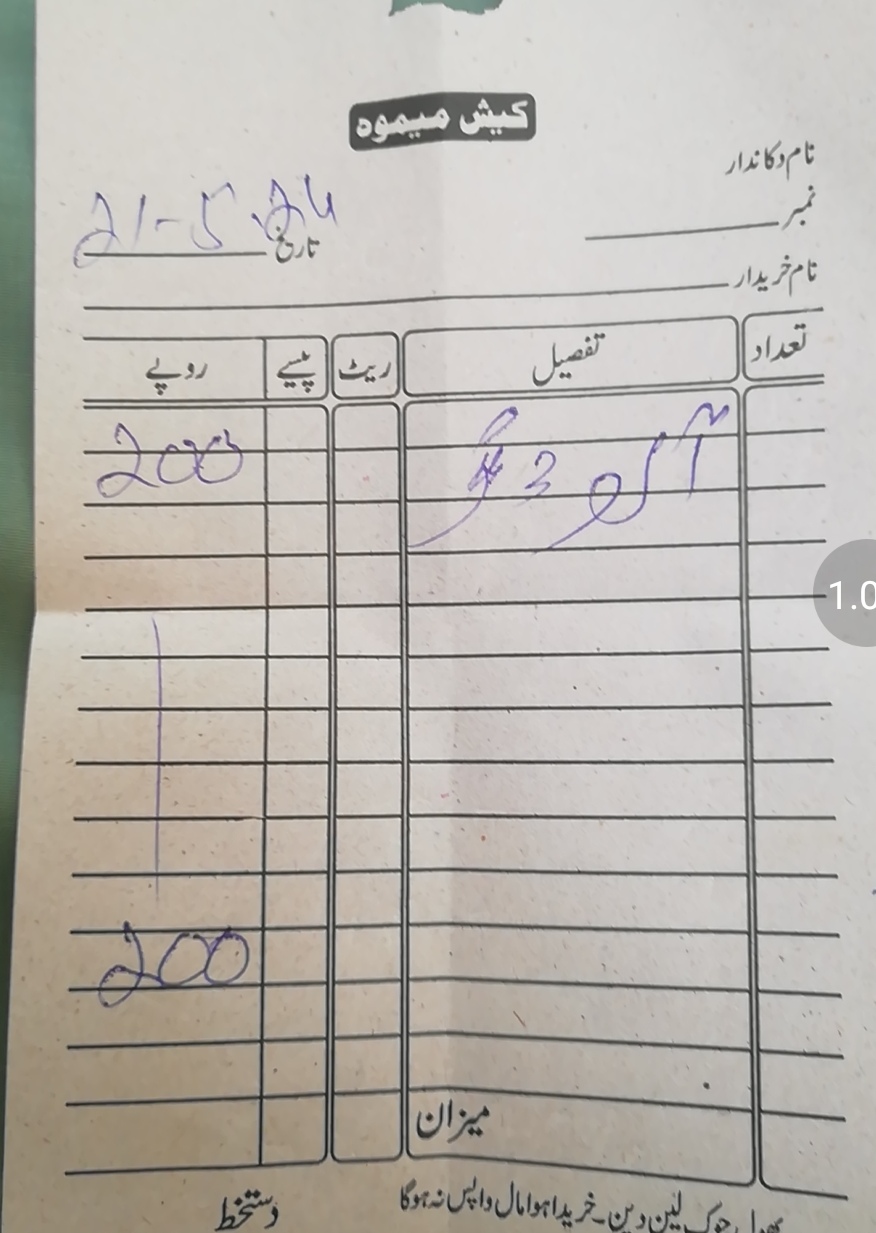 کیش میمو
نام دکاندار
نمبر
تاریخ 21-5.24
نام خریدار
تعداد تفصیل ریٹ پیسے روپے
آلو 2 200
200
میزان
بھول چوک لین دین۔خریدا ہوا مال واپس نہ ہوگا دستخط
1.0